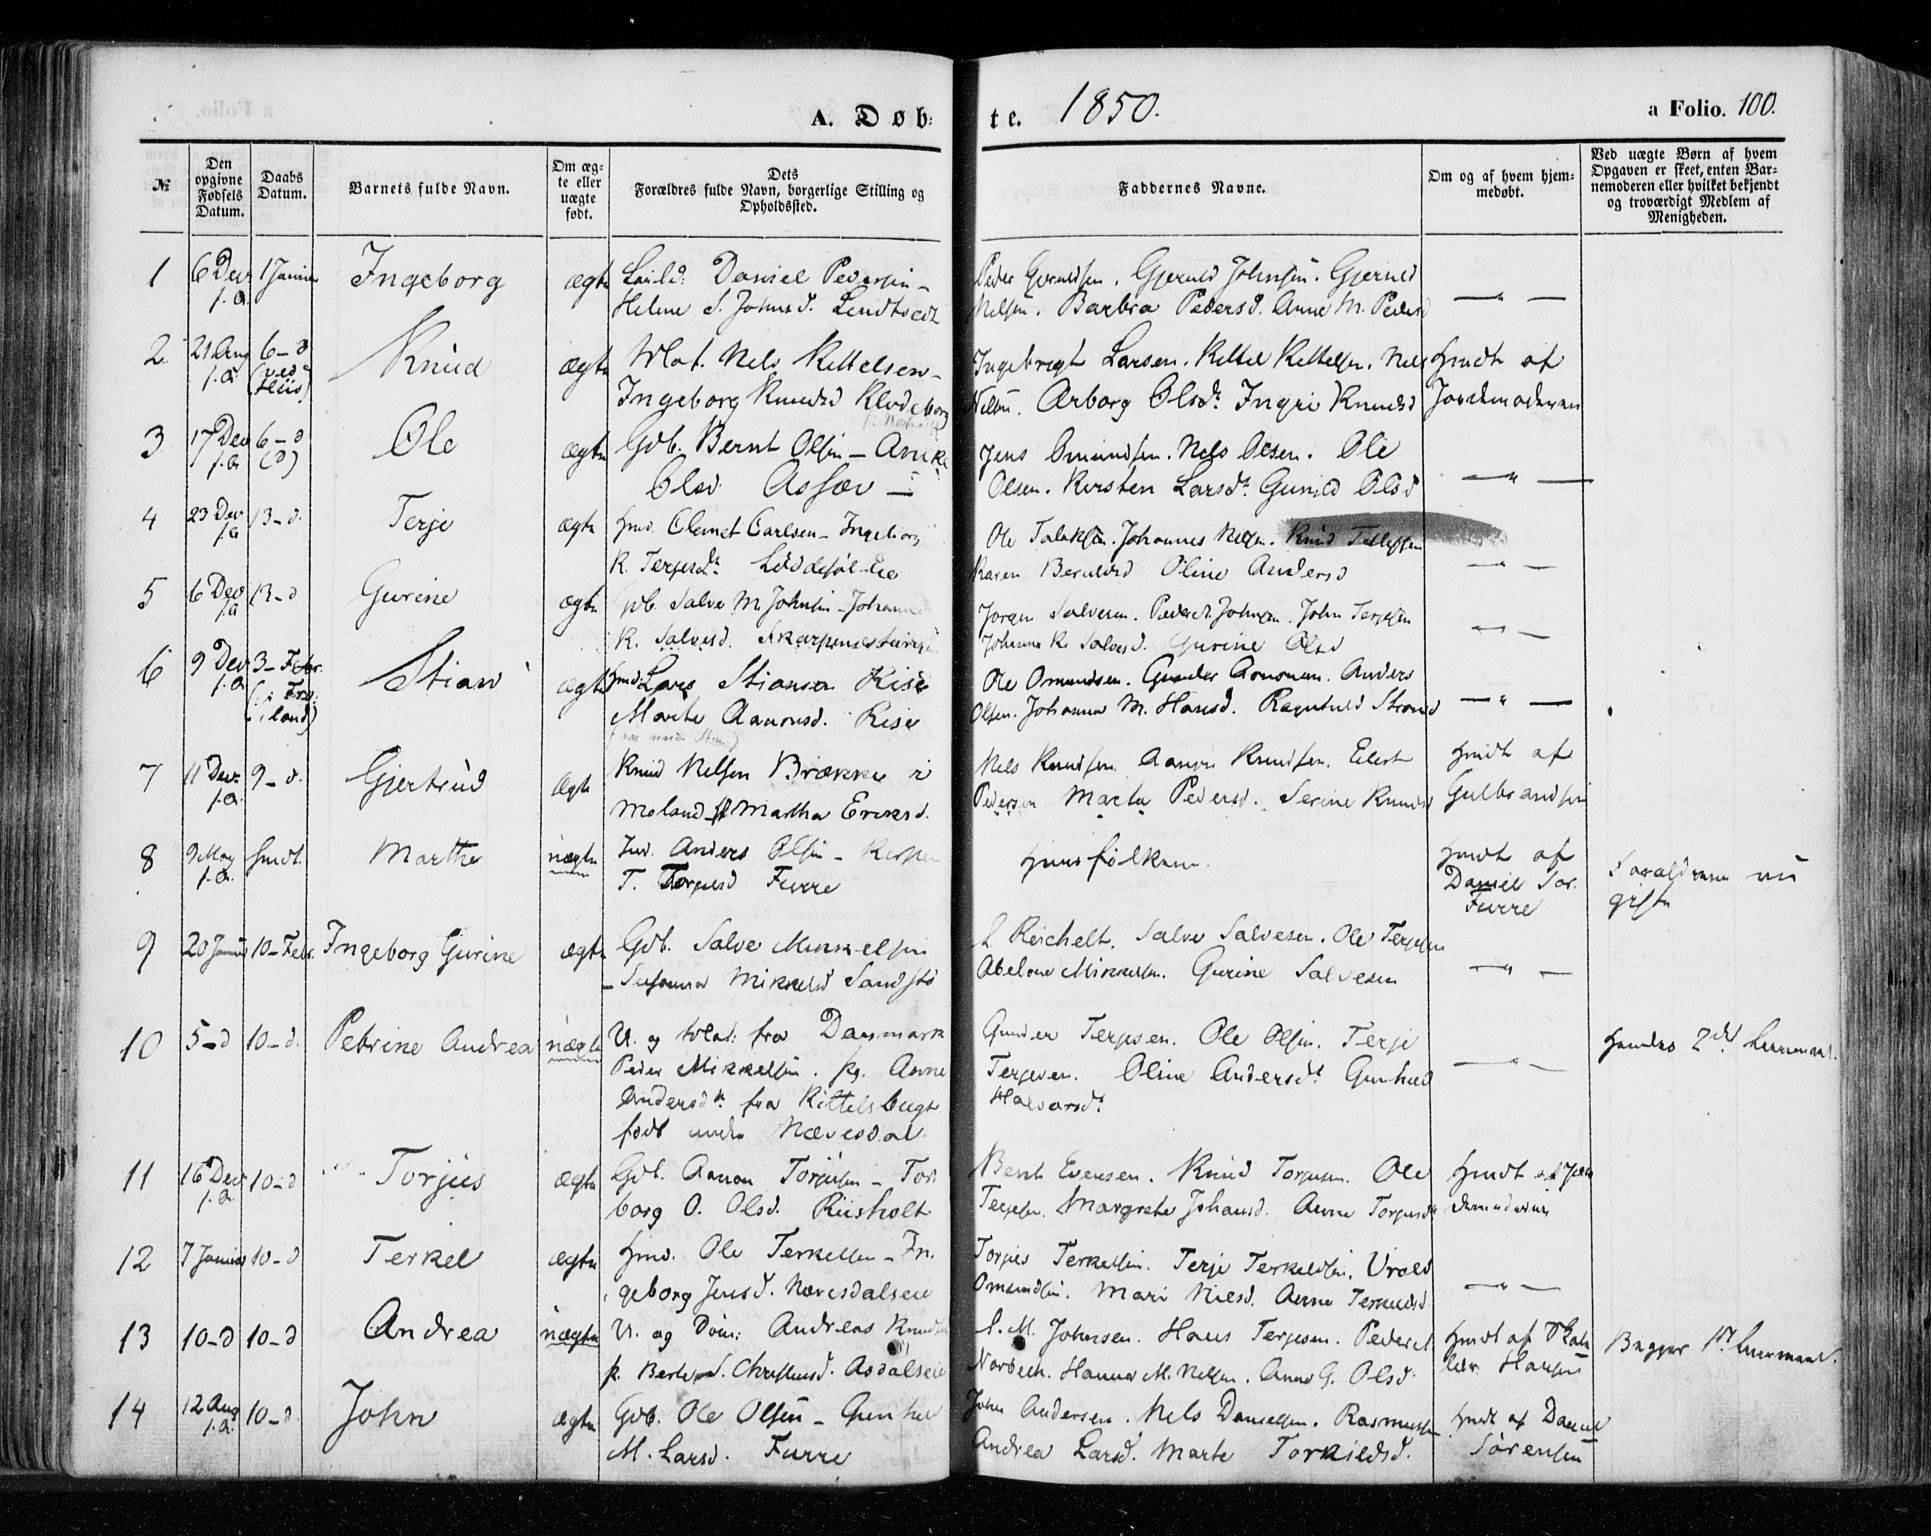 A. Døb:
te. 1850.
a Folio. 100.
№
Den opgivne Fødsels Datum.
Daabs Datum.
Barnets fulde Navn.
Om ægte eller uægte født.
Dets
Forældres fulde Navn, borgerlige Stilling og
Opholdssted.
Faddernes Navne.
Om og af hvem hjemmedøbt.
Ved uægte Børn af hvem
Opgaven er skeet, enten Barnemoderen eller hvilket bekjendt
og troværdigt Medlem af
Menigheden.
1 6 Dec f.a. 1 Januar Ingeborg ægte Daniel Pedersen –
Helene S. Johnsd. Lindtvedt
Peder Gjeruldsen. Gjeruld Johnsen. Gjeruld
Nelsen. Barbra Pedersd. Anne M. Pedersd
2 21 Aug f.a. 6 – d (ved Huus) Knud ægte Nels Kittelsen –
Ingeborg Knudsd Klodeborg
Ingebregt Larsen. Kittel Kittelsen. Nels
Nelsen. Arborg Olsdr. Ingri Knudsd
Hmdt af
Jordemoderen
3 17 Dec f.a. 6 – d (d) Ole ægte Gdb. Bernt Olsen – Anne
Olsd. Assæv –
Jens Omundsen. Nels Olsen. Ole
Olsen. Kirsten Larsdr. Gunild Olsd
4 23 Dec f.a. 13 – d. Terje ægte Hmd. Clemet Carlsen – Ingeborg
K. Terjesdr. Løddesøl-Eie
Ole Johannes Nelsen. Knud Tellefsen
Karen Berulvsd Oline Andersd
5 6 Dec f.a. 13 – d Gurine ægte Gdb. Salve M. Johnsen – Johanne
K. Salvesd.
Jørgen Salvesen. John Terjesen
Johanne K. Salvesd. Gurine Olsd
6 9 Dec f.a. 3 – Febr. Stian ægte Hmd Lars Stiansen Rise
Marte Aanonsd. Rise
Ole Omundsen. Gunder Aanonsen. Anders
Olsen. Johanne M. Hansd. Ragnhild
7 11 Dec. f.a. 9 – d. Gjertrud ægte Knud Nelsen Brække i
Moland – Martha Eriksd.
Nels Knudsen Aanon Knudsen. Eilert
Pedersen Marte Pedersd. Serine Knudsd
Hmdt af
Gulbrandsen
8 9 May f.a. Hmdt. Marthe uægte Anders Olsen –
T. Torjusd Furre
Huusfolkene.
Hmdt af
Daniel Sør.
Furre
Forældrene nu
gifte
9 20 Januar 10 – Febr. Ingeborg Gurine ægte Gdb. Salve Mikkelsen
– Susanna Mikkelsd Sandstø
Reichelt. Salve Salvesen. Ole Terjesen
Abelone Mikkelsen. Gurine Salvesen
10 5 – d 10 – d. Petrine Andrea uægte U. og Mat. fra Danmark
Peder Mikkelsen. pg. Anne
Andersdr. fra Kittelsbugt
født under Nævesdal
Gunder Terjesen. Ole Olsen. Terje
Terjesen. Oline Andersdr. Gunhild
Halvorsdr
Hendes 2det Leiermaal.
11 16 Dec f.a. 10 – d Torjus ægte Gdb. Aanon Torjusen – Tor-
borg O. Olsd. Riisholt
Bernt Evensen. Knud Torjusen. Ole
Terjesen. Margrete Johansd. Anne Torjusd
Hmdt af Jor-
demoderen
12 7 Januar 10 – d Terkel ægte Hmd. Ole Terkelsen – In-
geborg Jensd. Nævesdalseie
Torjus Terkelsen. Terje Terkeldsen. Urold
Omundsen. Mari Nielsd. Anne Terkeldsd
13 10 – d 10 – d Andrea uægte U. og Andreas Knudsen
p. Berte S. Christensd. Asdalseie
M. Johnsen. Hans Terjesen.
Norbech. Hanna M. Nelsen. Anne G. Olsd.
Hmdt af
Hansen
Begges 1ste Leiermaal.
14 12 Aug f.a. 10 – d. John ægte Gdb. Ole Olsen – Gunhild
M. Larsd. Furre
John Andersen. Nels Danielsen. Rasmus
Andrea Larsd. Marte Torkildsd.
Hmdt af Daniel
Sørensen